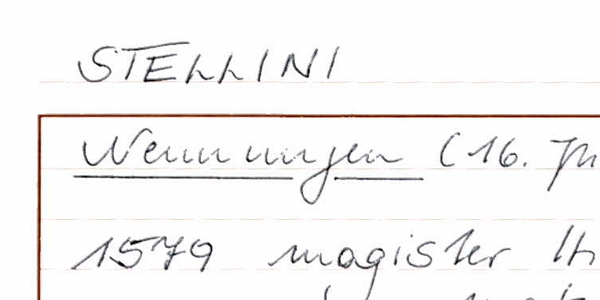 STELLINI
Nennungen (16. Jh
1579 magister Th